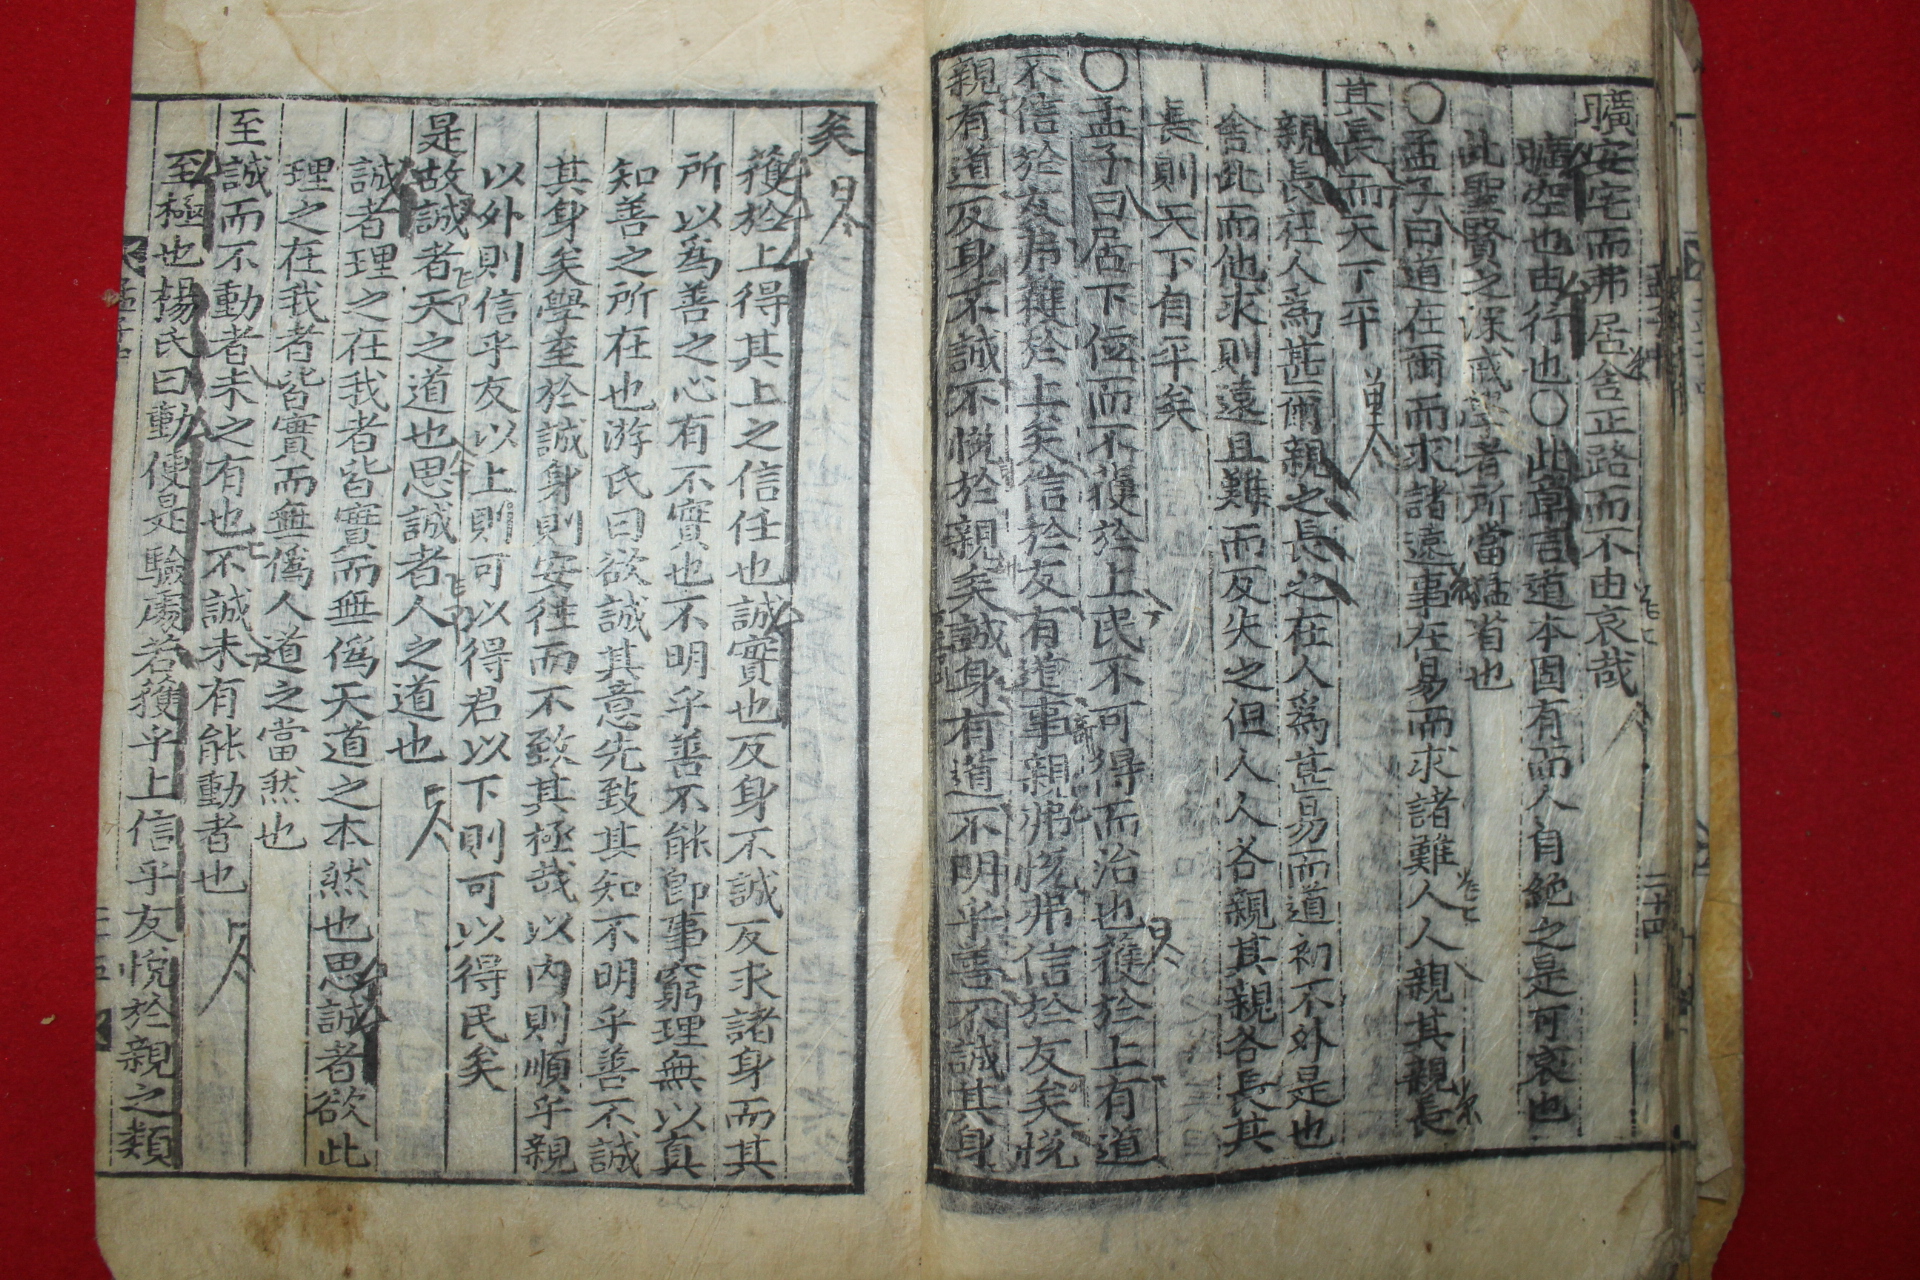 曠安宅而弗居舍正路而不由哀哉
曠空也由行也〇此章言道本固有而人自絶之是可哀也
此聖賢之深戒學者所當猛省也
〇孟子曰道在爾而求諸遠事在易而求諸難人人親其親長
其長而天下平
親長在人爲甚爾親之長之在人爲甚易而道初不外是也
舍此而他求則遠且難而反失之但人人各親其親各長其
長則天下自平矣
〇孟子曰居下位而不獲於上民不可得而治也獲於上有道
不信於友弗獲於上矣信於友有道事親弗悅弗信於友矣悅
親有道反身不誠不悅於親矣誠身有道不明乎善不誠其身
矣
獲於上得其上之信任也誠實也反身不誠反求諸身而其
所以爲善之心有不實也不明乎善不能卽事窮理無以眞
知善之所在也游氏曰欲誠其意先致其知不明乎善不誠
其身矣學至於誠身則安往而不致其極哉以內則順乎親
以外則信乎友以上則可以得君以下則可以得民矣
是故誠者天之道也思誠者人之道也
誠者理之在我者皆實而無僞天道之本然也思誠者欲此
理之在我者皆實而無僞人道之當然也
至誠而不動者未之有也不誠未有能動者也
至極也楊氏曰動便是驗處若獲乎上信乎友悅於親之類